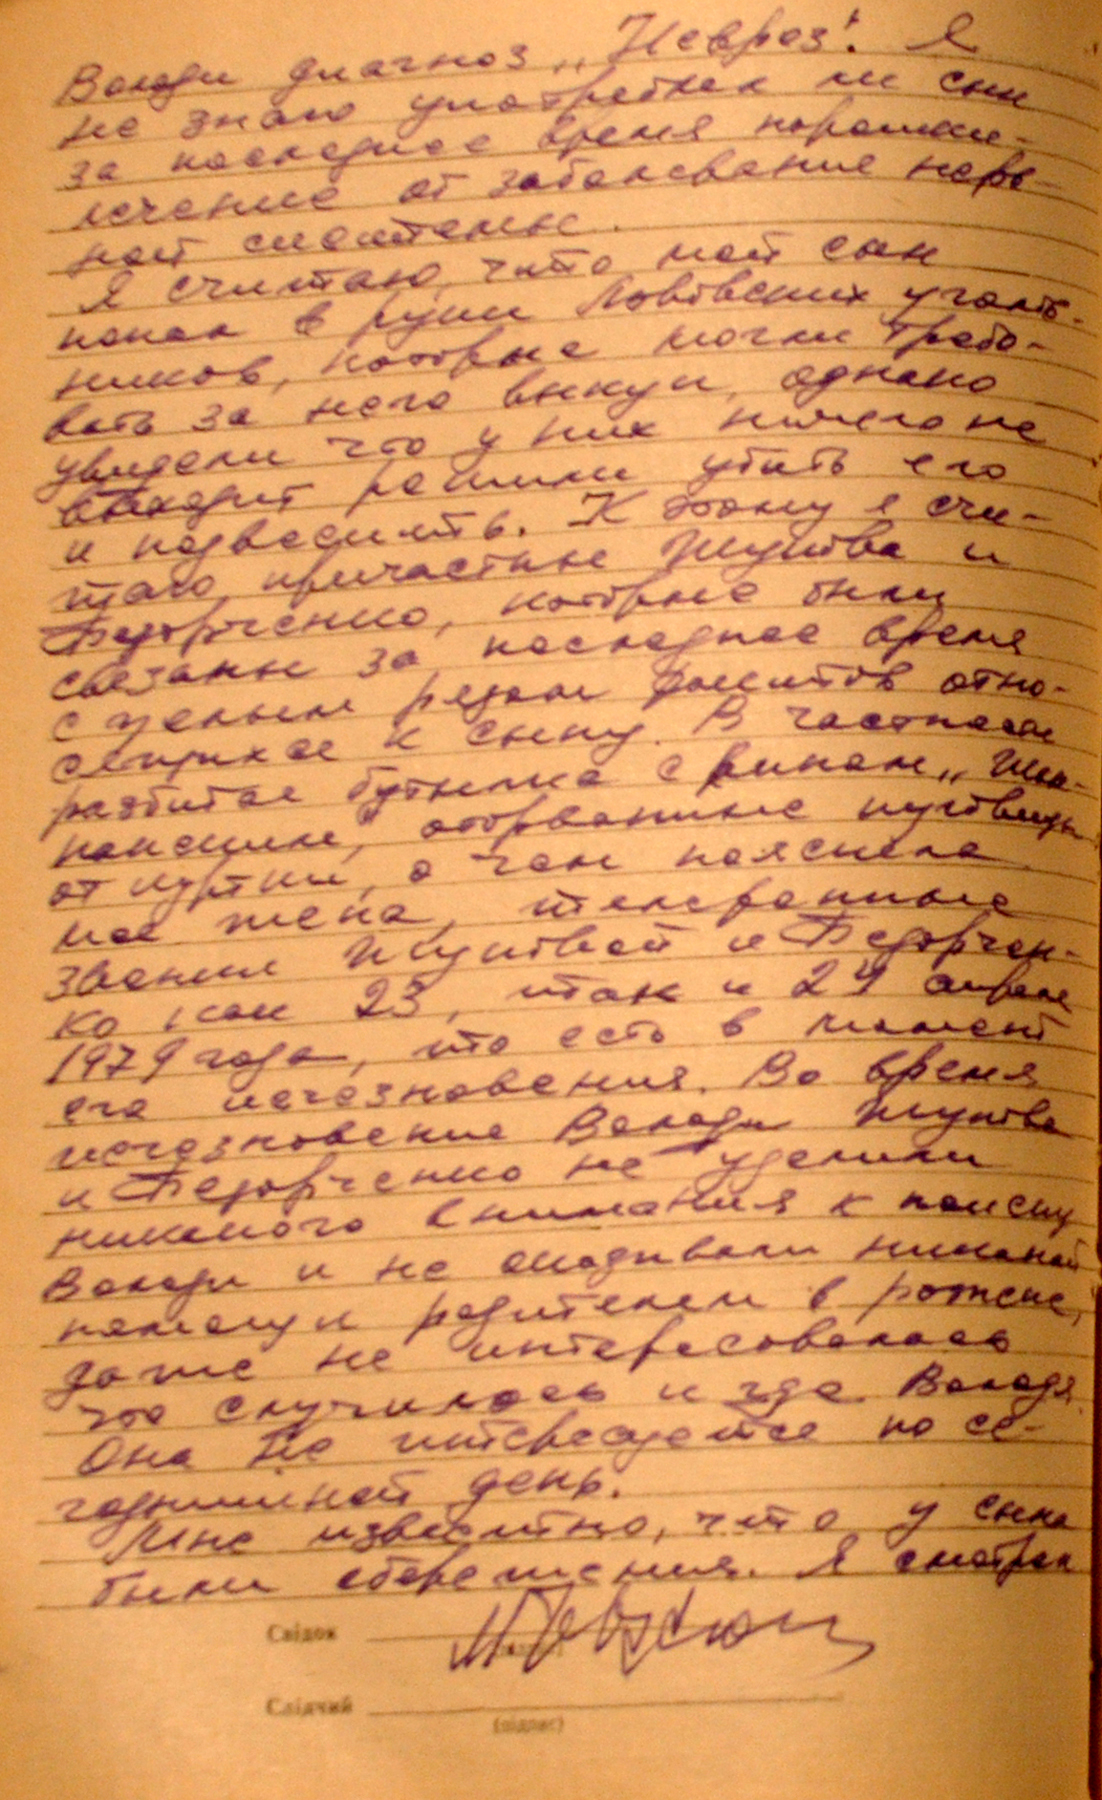 Володи диагноз „Невроз". Я
не знаю употреблял ли сын
за последнее время порошки-
лечение от заболевание нерв-
ной системы.
Я считаю, что мой сын
попал в руки Львовских уголов-
ников, которые могли требо-
вать за него выкуп, однако
увидели что у них ничего не
выходит решили убить его
и подвесить. К этому я счи-
таю причастные Жукова и
Федорченко, которые были
связаны за последнее время
с целым рядом фактов отно-
сящихся к сыну. В частности
разбитая бутылка с вином „Шам-
панским", оторванные пуговицы
от куртки, о чем пояснила
моя жена, телефонные
звонки Жуковой и Федорчен-
ко как 23, так и 24 апреля
1979 года, что есть в момент
его исчезновения. Во время
исчезновение Володи Жукова
и Федорченко не уделили
никакого внимания к поиску
Володи и не оказывали никакой
помощи родителям в розыске,
даже не интересовалась
что случилось и где Володя.
Она не интересуется по се-
годняшний день.
Мне известно, что у сына
были сбережения. Я смотрел
Свідок
(підпис)
Слідчий
(підпис)